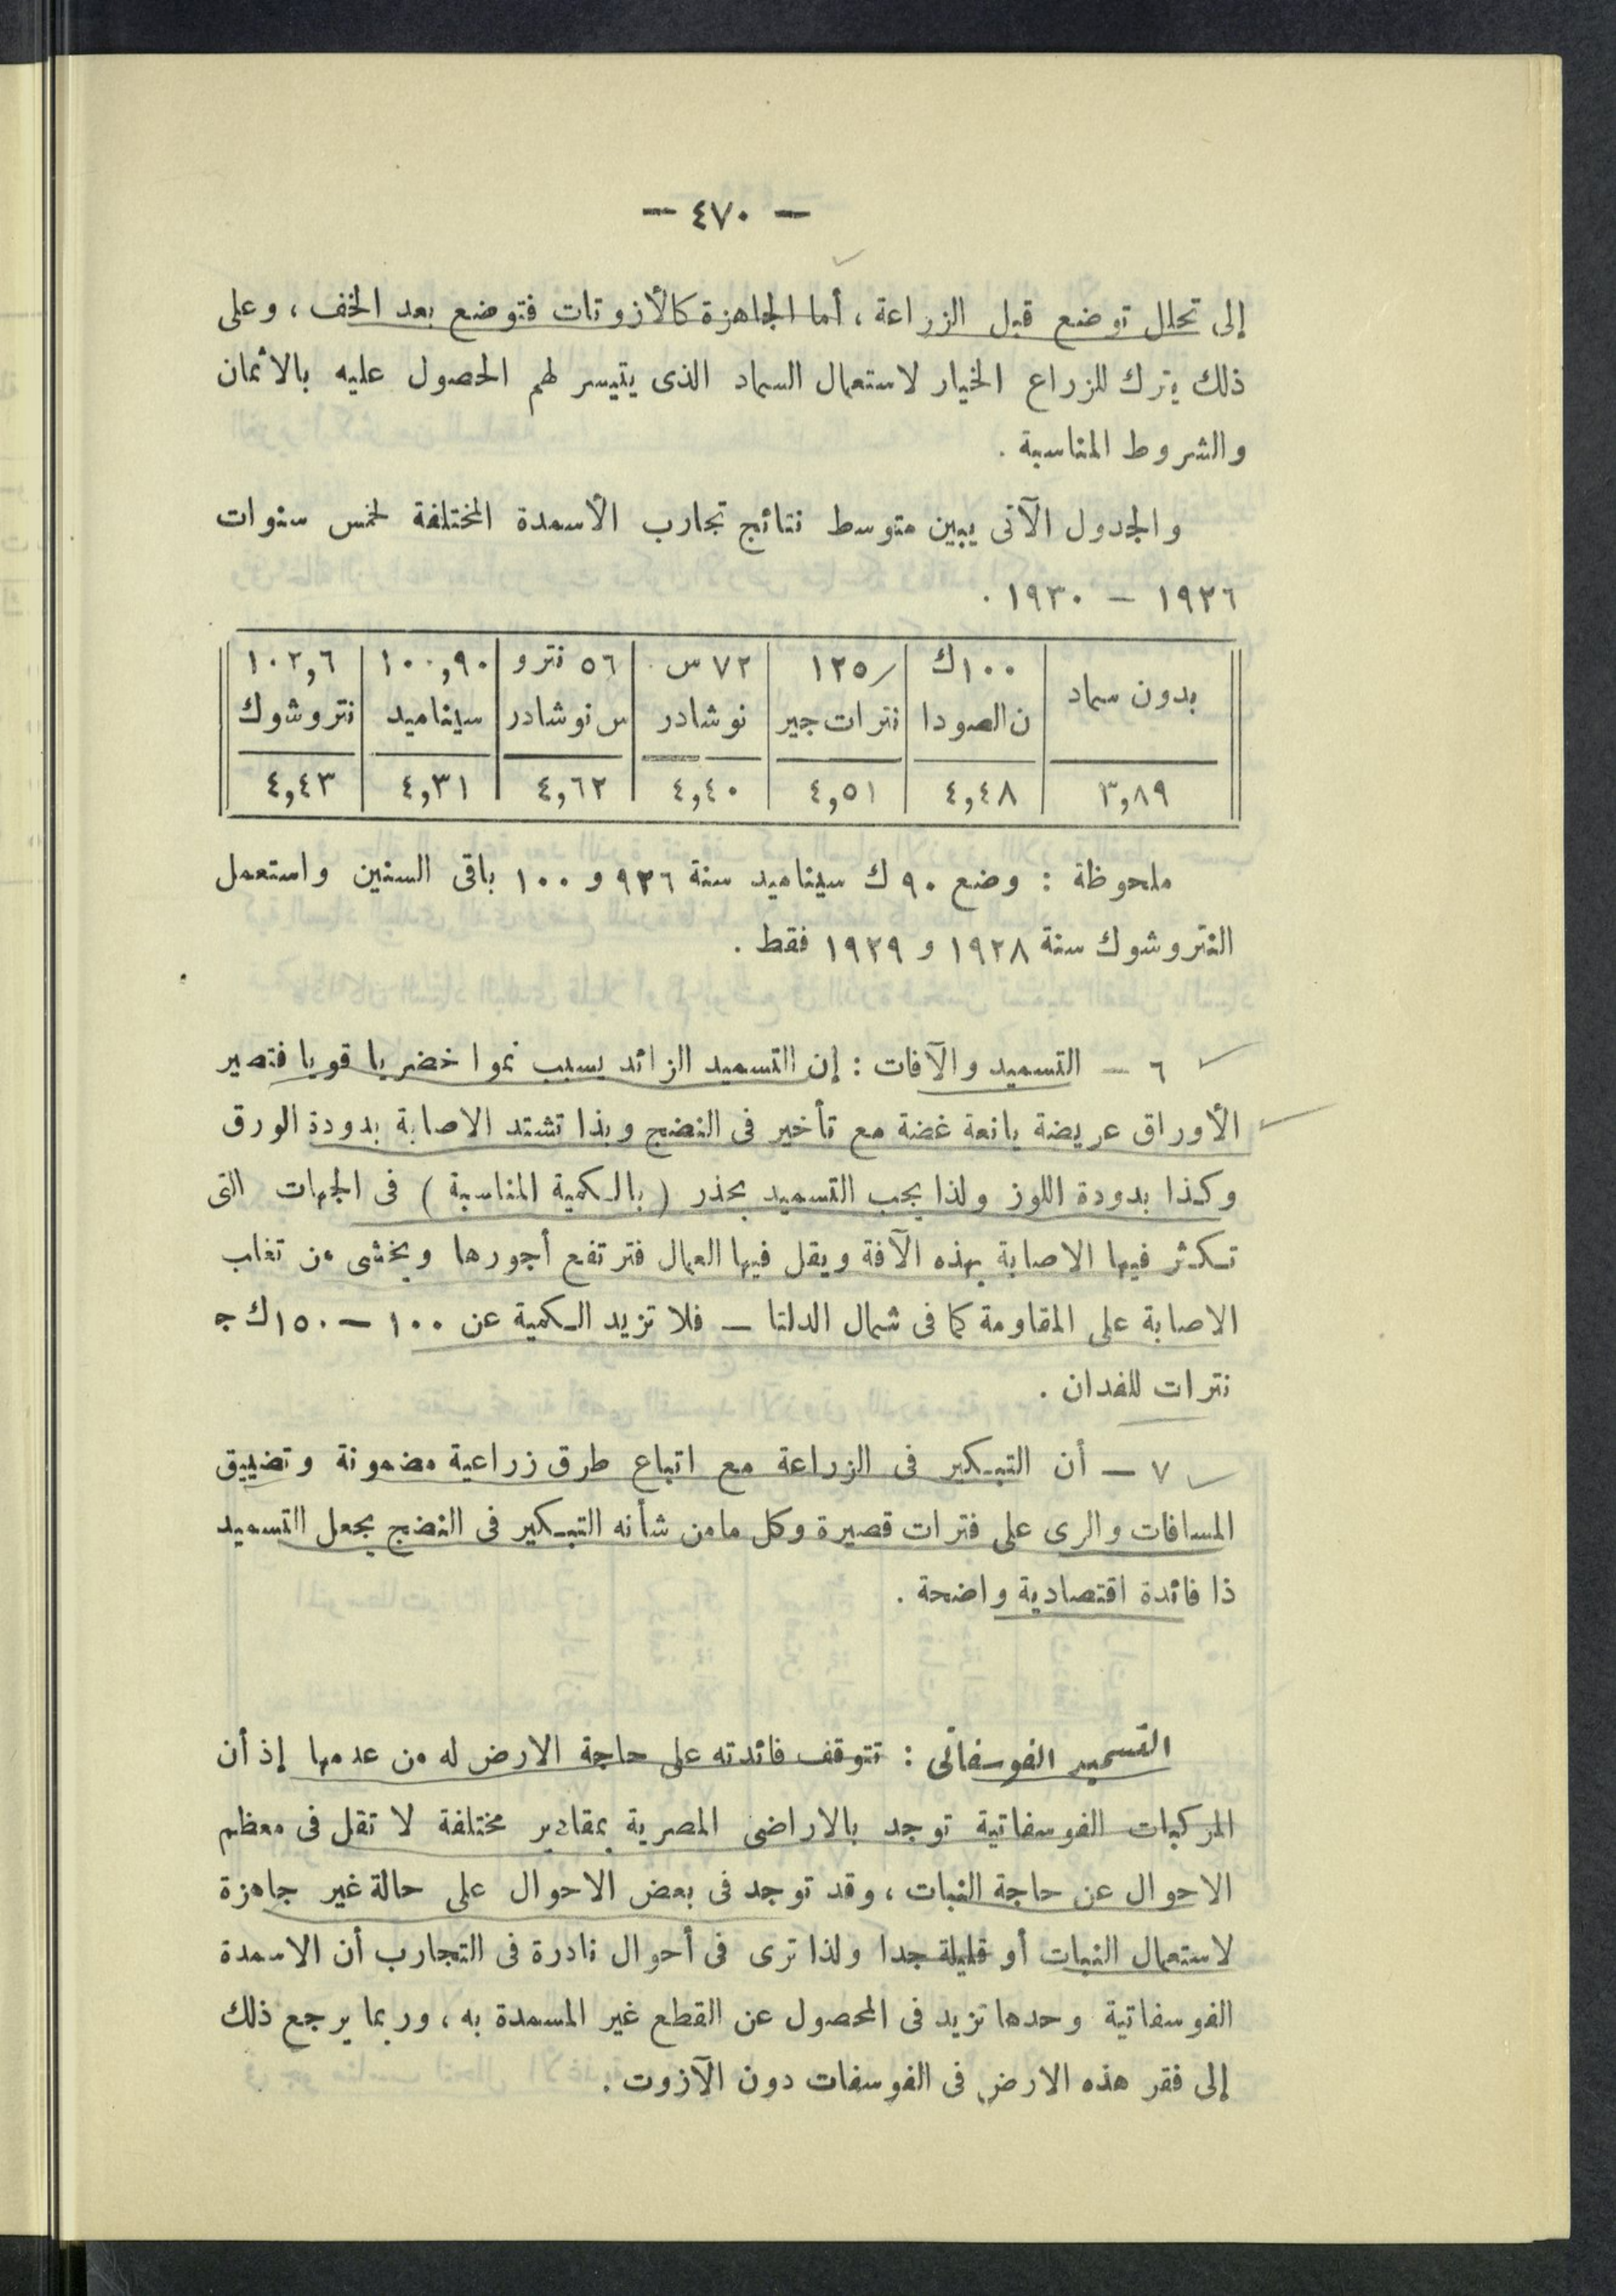 — ٤٧٠ —
إلى تحلل توضع قبل الزراعة ، أما الجاهزة كالأزوتات فتوضع بعد الخف ، وعلى
ذلك يترك للزراع الخيار لاستعمال السماد الذى يتيسر لهم الحصول عليه بالاثمان
والشروط المناسبة .
والجدول الآتى يبين متوسط نتائج تجارب الأسمدة المختلفة لخمس سنوات
١٩٢٦ — ١٩٣٠ .
بدون سماد | ١٠٠ ك | ١٢٥/ | ٧٢ س | ٥٦ نترو | ١٠٠,٩٠ | ١٠٢,٦
ن الصودا | نترات جير | نوشادر | س نوشادر | سيناميد | نتروشوك
٣,٨٩ | ٤,٤٨ | ٤,٥١ | ٤,٤٠ | ٤,٦٢ | ٤,٣١ | ٤,٤٣
ملحوظة : وضع ٩٠ ك سيناميد سنة ٩٢٦ و ١٠٠ باقى السنين واستعمل
النتروشوك سنة ١٩٢٨ و ١٩٢٩ فقط .
٦ — التسميد والآفات : إن التسميد الزائد يسبب نموا خضريا قويا فتصير
الأوراق عريضة يانعة غضة مع تأخير فى النضج وبذا تشتد الاصابة بدودة الورق
وكذا بدودة اللوز ولذا يجب التسميد بحذر ( بالكمية المناسبة ) فى الجهات التى
تكثر فيها الاصابة بهذه الآفة ويقل فيها العمال فترتفع أجورها ويخشى من تغلب
الاصابة على المقاومة كما فى شمال الدلتا — فلا تزيد الكمية عن ١٠٠ — ١٥٠ ك ج
نترات للفدان .
٧ — أن التبكير فى الزراعة مع اتباع طرق زراعية مضمونة وتضييق
المسافات والرى على فترات قصيرة وكل مامن شأنه التبكير فى النضج يجعل التسميد
ذا فائدة اقتصادية واضحة .
التسميد الفوسفاتى : تتوقف فائدته على حاجة الارض له من عدمها إذ أن
المركبات الفوسفاتية توجد بالاراضى المصرية بمقادير مختلفة لا تقل فى معظم
الاحوال عن حاجة النبات ، وقد توجد فى بعض الاحوال على حالة غير جاهزة
لاستعمال النبات أو قليلة جدا ولذا ترى فى أحوال نادرة فى التجارب أن الاسمدة
الفوسفاتية وحدها تزيد فى المحصول عن القطع غير المسمدة به ، وربما يرجع ذلك
إلى فقر هذه الارض فى الفوسفات دون الآزوت .